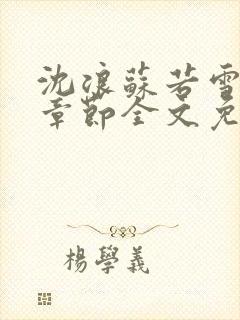 沈浪蘇若雪
章節全文免
楊學義